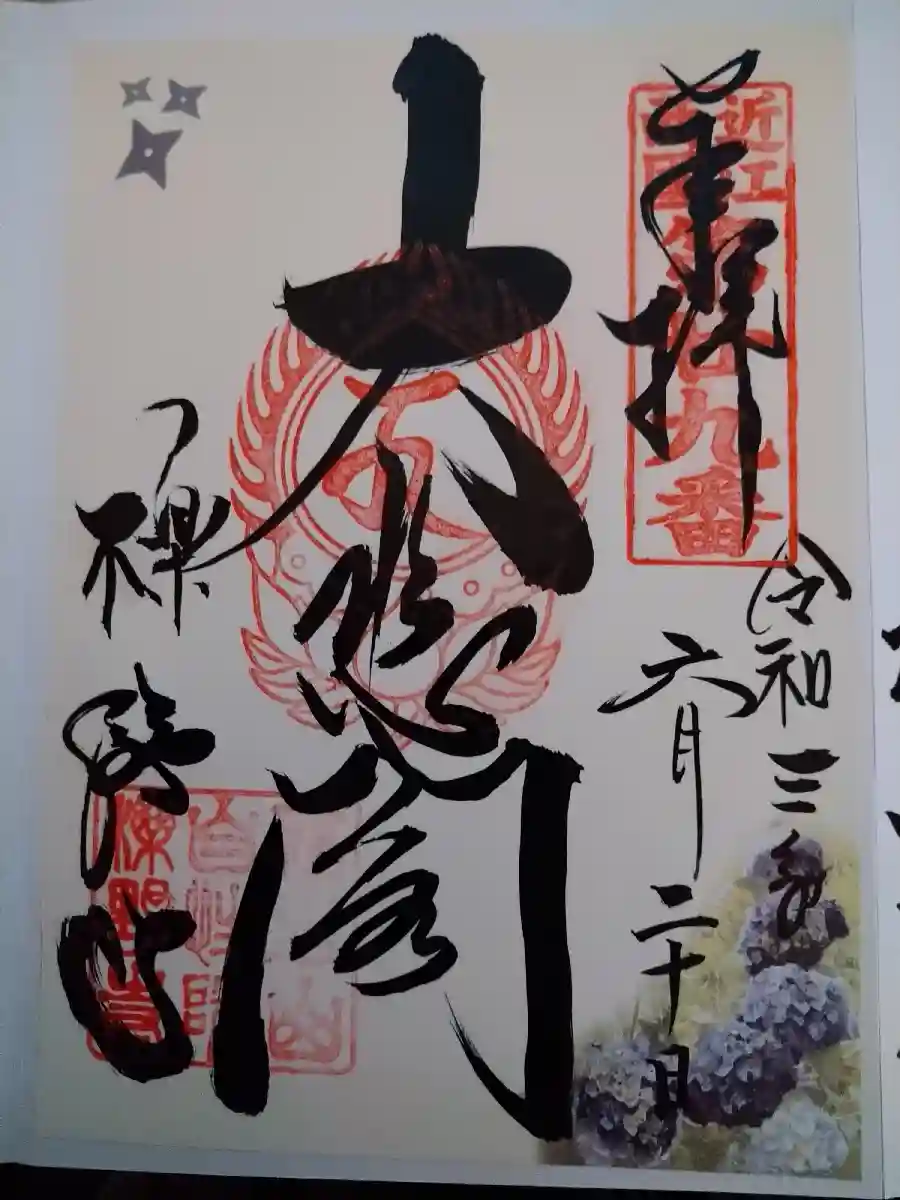 奉拝
近江
西国
第廿九番
令和三年
六月二十日
大悲閣
櫟野寺
山
自性院
櫟野寺